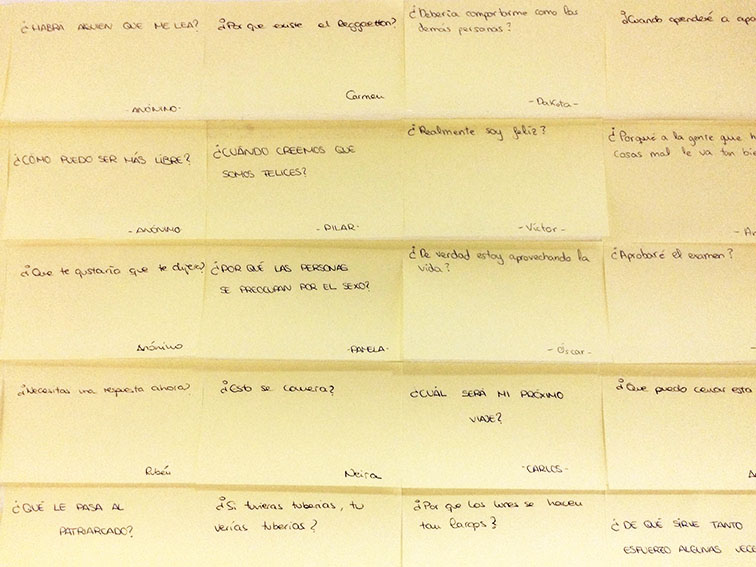 ¿HABRÁ ALGUIEN QUE ME LEA?
-ANÓNIMO-
¿Por que existe el Reggaetton?
Carmen
¿Debería comportarme como las
demás personas?
-Dakota-
¿Cuando aprenderé a
¿CÓMO PUEDO SER MÁS LIBRE?
-ANÓNIMO-
¿CUÁNDO CREEMOS QUE
SOMOS FELICES?
-PILAR-
¿Realmente soy feliz?
-Víctor-
¿Porqué a la gente que
cosas mal le va tan
¿Que te gustaría que te dijera?
Anónimo
¿POR QUÉ LAS PERSONAS
SE PREOCUPAN POR EL SEXO?
-PAMELA-
¿De verdad estoy aprovechando la
vida?
-Óscar-
¿Aprobaré el examen?
¿Necesitas una respuesta ahora?
Rubén
¿Esto se
Neira
¿CUÁL SERÁ MI PRÓXIMO
VIAJE?
-CARLOS-
¿Que puedo cenar esta
¿QUÉ LE PASA AL
PATRIARCADO?
¿Si tuvieras tuberías, tu
verías tuberías?
¿Por que los lunes se hacen
tan largos?
¿DE QUÉ SIRVE TANTO
ESFUERZO ALGUNAS